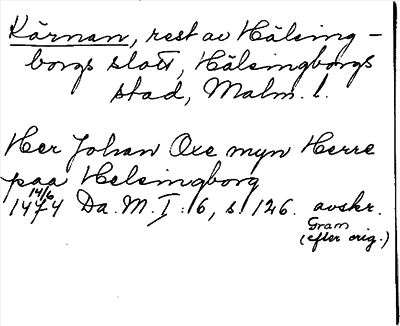 Kärnan, rest av Hälsing-
borgs slott, Hälsingborgs
stad, Malm. l.
Her Johan Oxe myn Herre
paa Helsingborg
14/6
1474 Da. M. I: 6, s. 126. avskr.
Gram
(efter orig.)